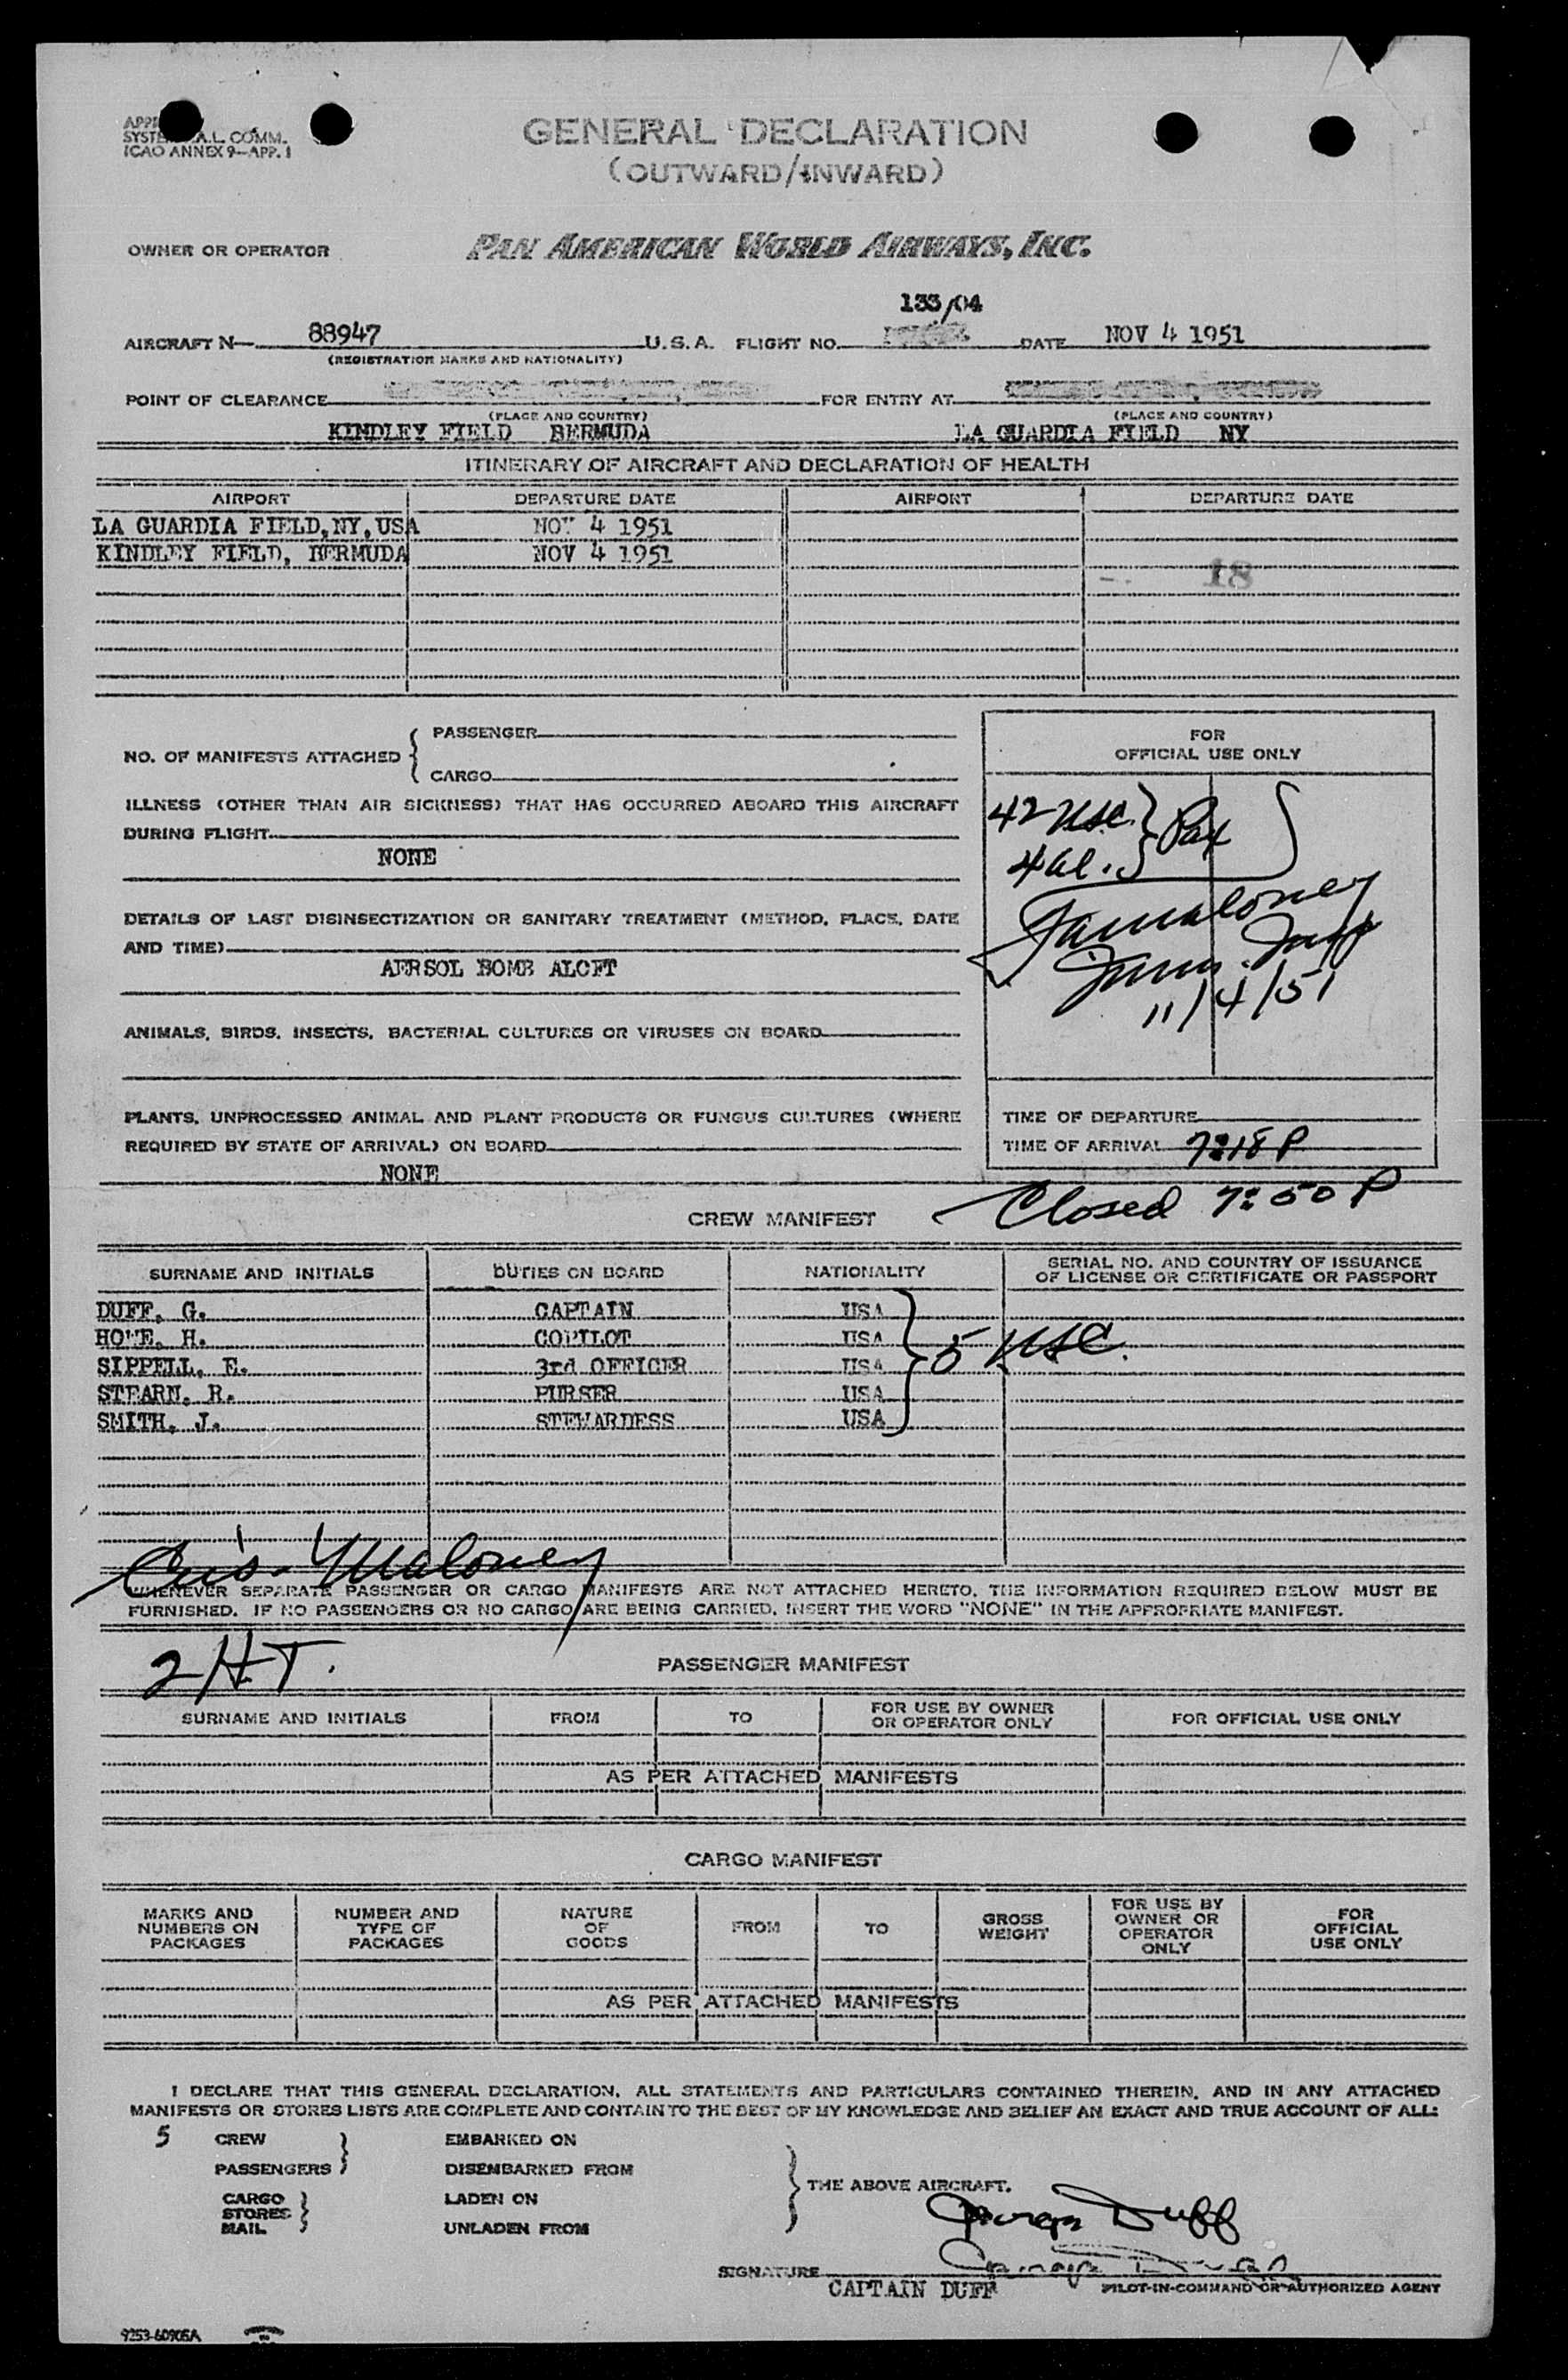 SYSTE A.L. COMM.
ICAO ANNEX 9—APP. 1
GENERAL DECLARATION
(OUTWARD/INWARD)
OWNER OR OPERATOR PAN AMERICAN WORLD AIRWAYS, INC.
133/04
AIRCRAFT N— 88947 U.S.A. FLIGHT NO. DATE NOV 4 1951
(REGISTRATION MARKS AND NATIONALITY)
POINT OF CLEARANCE FOR ENTRY AT
(PLACE AND COUNTRY) (PLACE AND COUNTRY)
KINDLEY FIELD BERMUDA LA GUARDIA FIELD NY
ITINERARY OF AIRCRAFT AND DECLARATION OF HEALTH
AIRPORT DEPARTURE DATE AIRPORT DEPARTURE DATE
LA GUARDIA FIELD, NY, USA NOV 4 1951
KINDLEY FIELD, BERMUDA NOV 4 1951
18
NO. OF MANIFESTS ATTACHED { PASSENGER
CARGO
FOR
OFFICIAL USE ONLY
ILLNESS (OTHER THAN AIR SICKNESS) THAT HAS OCCURRED ABOARD THIS AIRCRAFT
DURING FLIGHT
NONE
42 USC. } Pax
4 al.
DETAILS OF LAST DISINSECTIZATION OR SANITARY TREATMENT (METHOD, PLACE, DATE
AND TIME)
AERSOL BOMB ALOFT
Maloney
Imm. Insp
11/4/51
ANIMALS, BIRDS, INSECTS, BACTERIAL CULTURES OR VIRUSES ON BOARD
PLANTS, UNPROCESSED ANIMAL AND PLANT PRODUCTS OR FUNGUS CULTURES (WHERE
REQUIRED BY STATE OF ARRIVAL) ON BOARD
NONE
TIME OF DEPARTURE
TIME OF ARRIVAL 7:18 P
Closed 7:50 P
CREW MANIFEST
SURNAME AND INITIALS DUTIES ON BOARD NATIONALITY SERIAL NO. AND COUNTRY OF ISSUANCE
OF LICENSE OR CERTIFICATE OR PASSPORT
DUFF, G. CAPTAIN USA
HOWE, H. COPILOT USA
SIPPELL, E. 3rd OFFICER USA } 5 USC.
STEARN, R. PURSER USA
SMITH, J. STEWARDESS USA
Maloney
WHENEVER SEPARATE PASSENGER OR CARGO MANIFESTS ARE NOT ATTACHED HERETO, THE INFORMATION REQUIRED BELOW MUST BE
FURNISHED. IF NO PASSENGERS OR NO CARGO ARE BEING CARRIED, INSERT THE WORD "NONE" IN THE APPROPRIATE MANIFEST.
2 H.T.
PASSENGER MANIFEST
SURNAME AND INITIALS FROM TO FOR USE BY OWNER
OR OPERATOR ONLY FOR OFFICIAL USE ONLY
AS PER ATTACHED MANIFESTS
CARGO MANIFEST
MARKS AND
NUMBERS ON
PACKAGES
NUMBER AND
TYPE OF
PACKAGES
NATURE
OF
GOODS
FROM
TO
GROSS
WEIGHT
FOR USE BY
OWNER OR
OPERATOR
ONLY
FOR
OFFICIAL
USE ONLY
AS PER ATTACHED MANIFESTS
I DECLARE THAT THIS GENERAL DECLARATION, ALL STATEMENTS AND PARTICULARS CONTAINED THEREIN, AND IN ANY ATTACHED
MANIFESTS OR STORES LISTS ARE COMPLETE AND CONTAIN TO THE BEST OF MY KNOWLEDGE AND BELIEF AN EXACT AND TRUE ACCOUNT OF ALL:
5 CREW EMBARKED ON
PASSENGERS DISEMBARKED FROM
THE ABOVE AIRCRAFT.
CARGO LADEN ON
STORES
MAIL UNLADEN FROM
George Duff
SIGNATURE George Duff
CAPTAIN DUFF PILOT-IN-COMMAND OR AUTHORIZED AGENT
9253-60905A